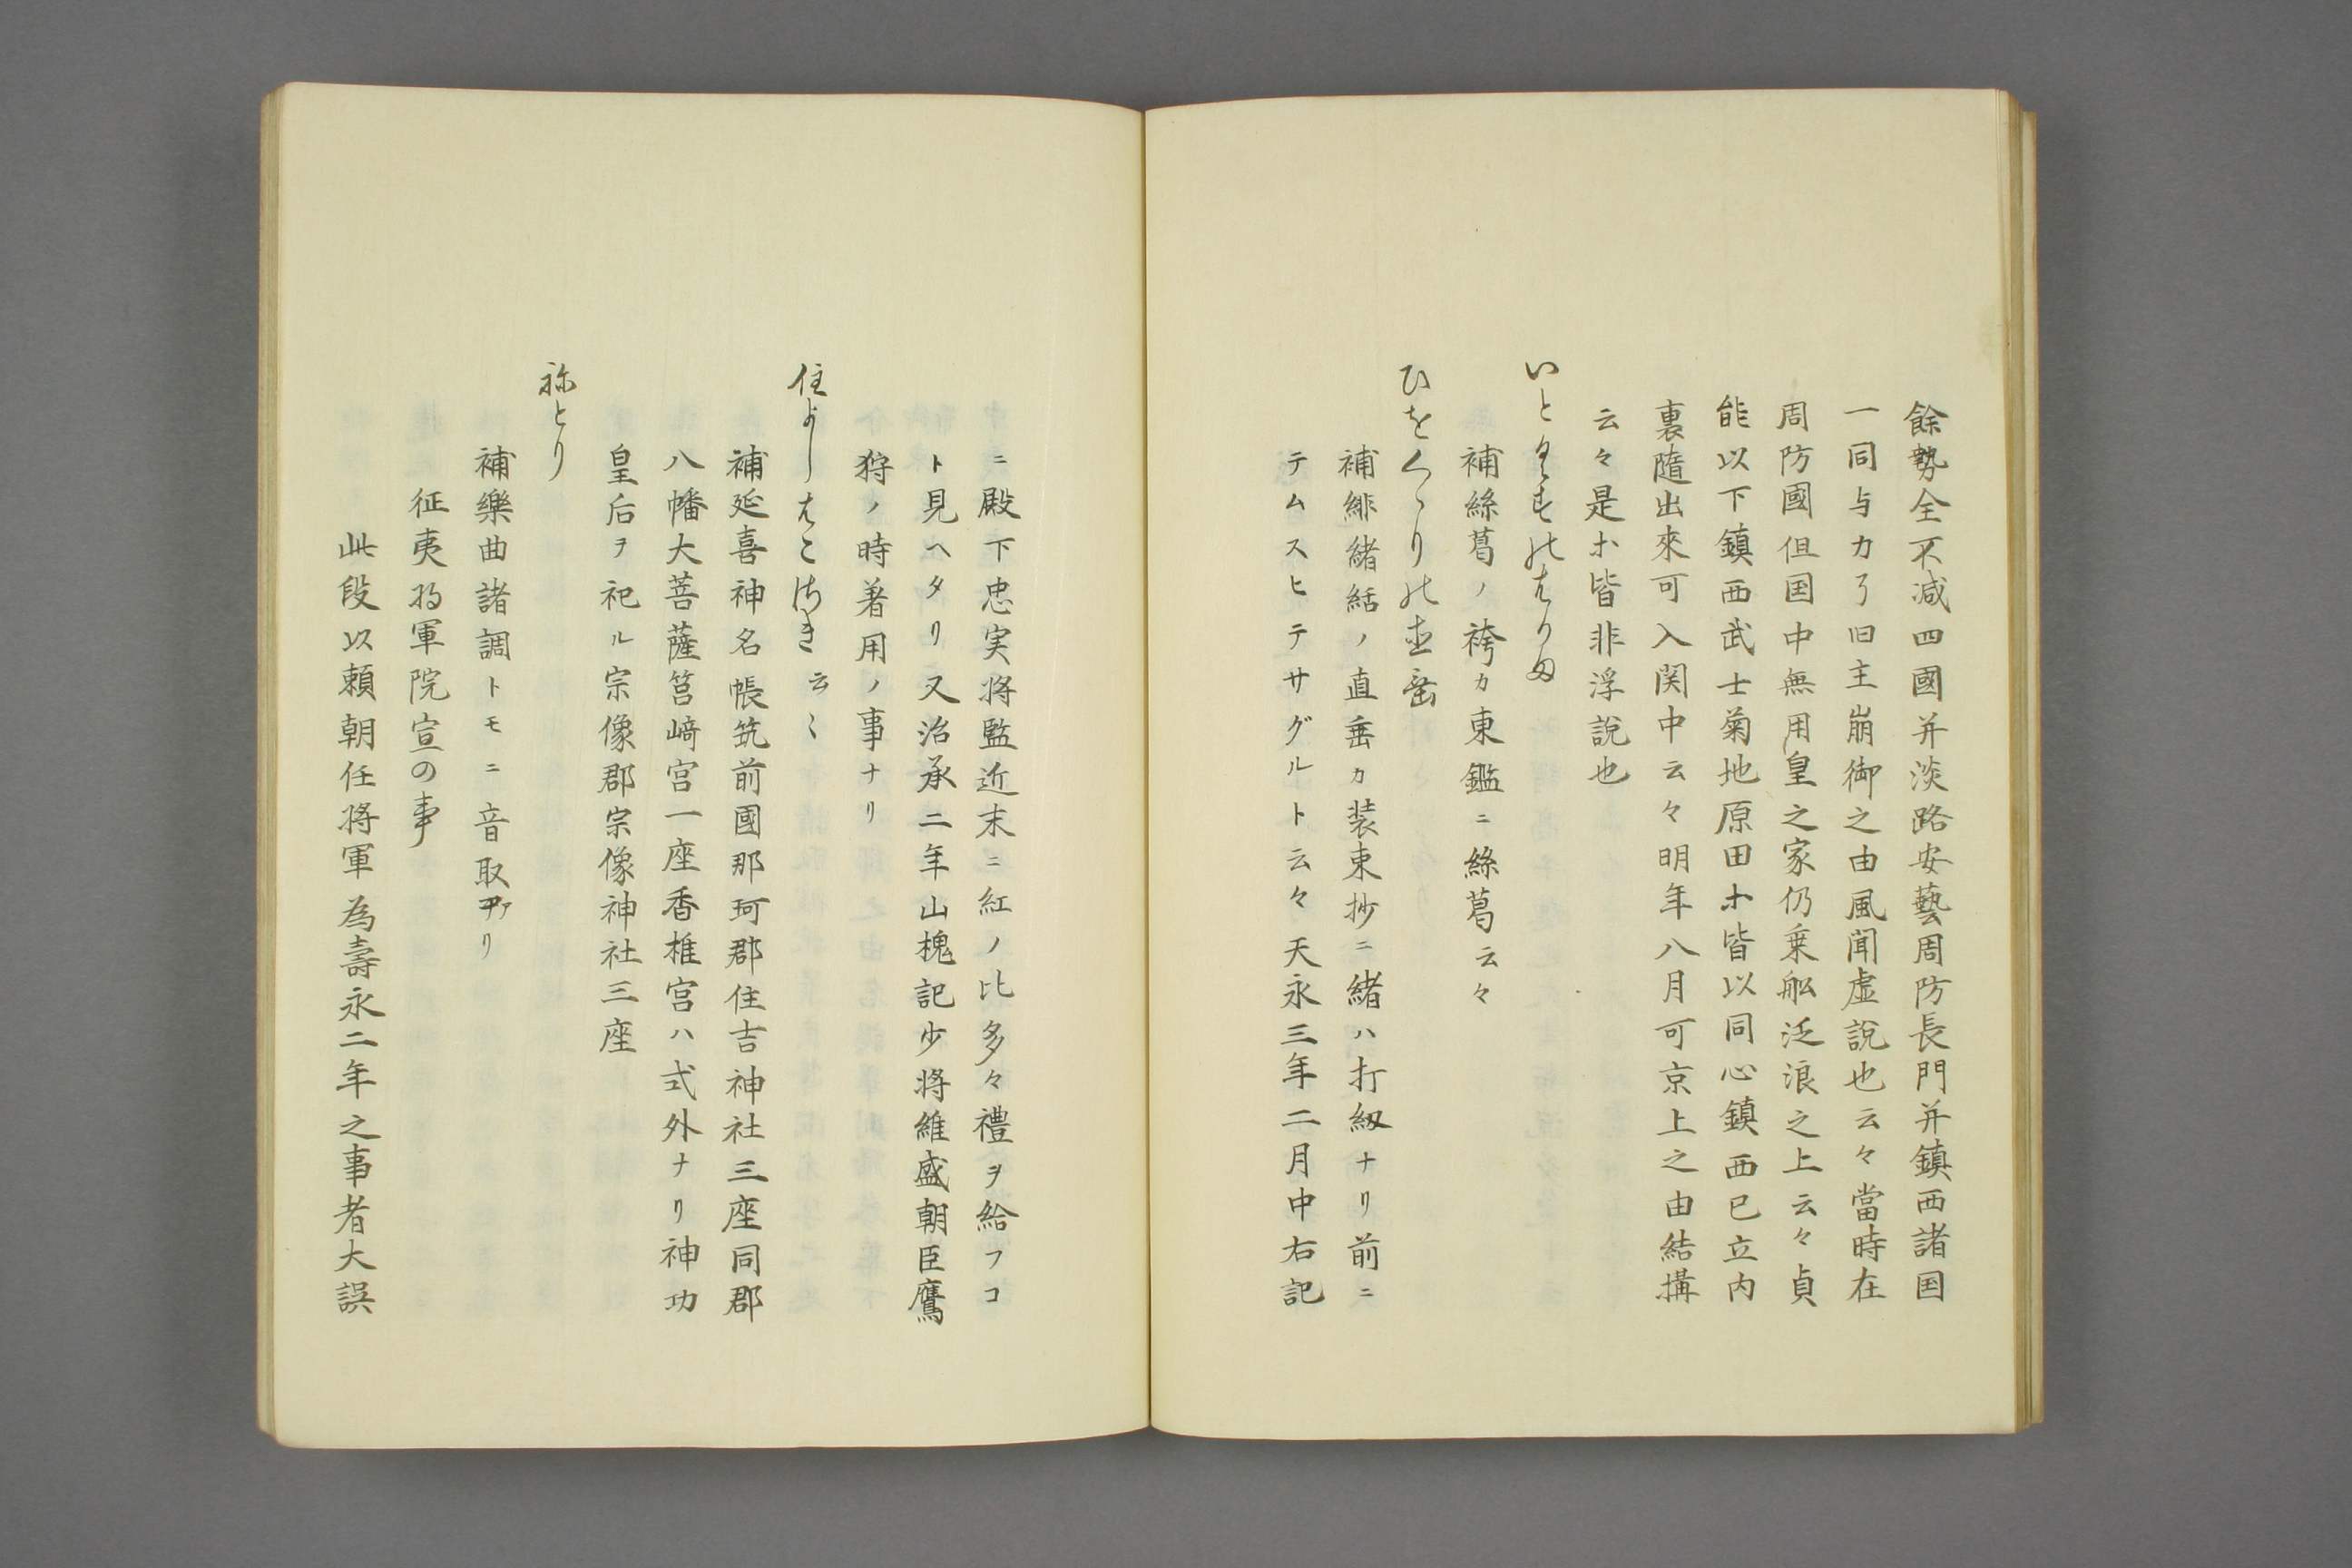 餘勢全不減四國并淡路安藝周防長門并鎮西諸国
一同与力了旧主崩御之由風聞虚説也云々當時在
周防國但国中無用皇之家仍乗船泛浪之上云々貞
能以下鎮西武士菊地原田ホ皆以同心鎮西已立内
裏隨出來可入関中云々明年八月可京上之由結搆
云々是ホ皆非浮説也
いとくすのはかま
補絲葛ノ袴カ東鑑ニ絲葛云々
ひをくゝりの直垂
補緋緒結ノ直垂カ装束抄ニ緒ハ打緅ナリ前ニ
テムスヒテサグルト云々天永三年二月中右記
ニ殿下忠実将監近末ニ紅ノ比多々禮ヲ給フコ
ト見ヘタリ又治承二年山槐記少将維盛朝臣鷹
狩ノ時著用ノ事ナリ
住よしはこさき云〻
補延喜神名帳筑前國那珂郡住吉神社三座同郡
八幡大菩薩筥﨑宮一座香椎宮ハ式外ナリ神功
皇后ヲ祀ル宗像郡宗像神社三座
祢とり
補樂曲諸調トモニ音取アリ
征夷将軍院宣の事
此段以頼朝任将軍為壽永二年之事者大誤